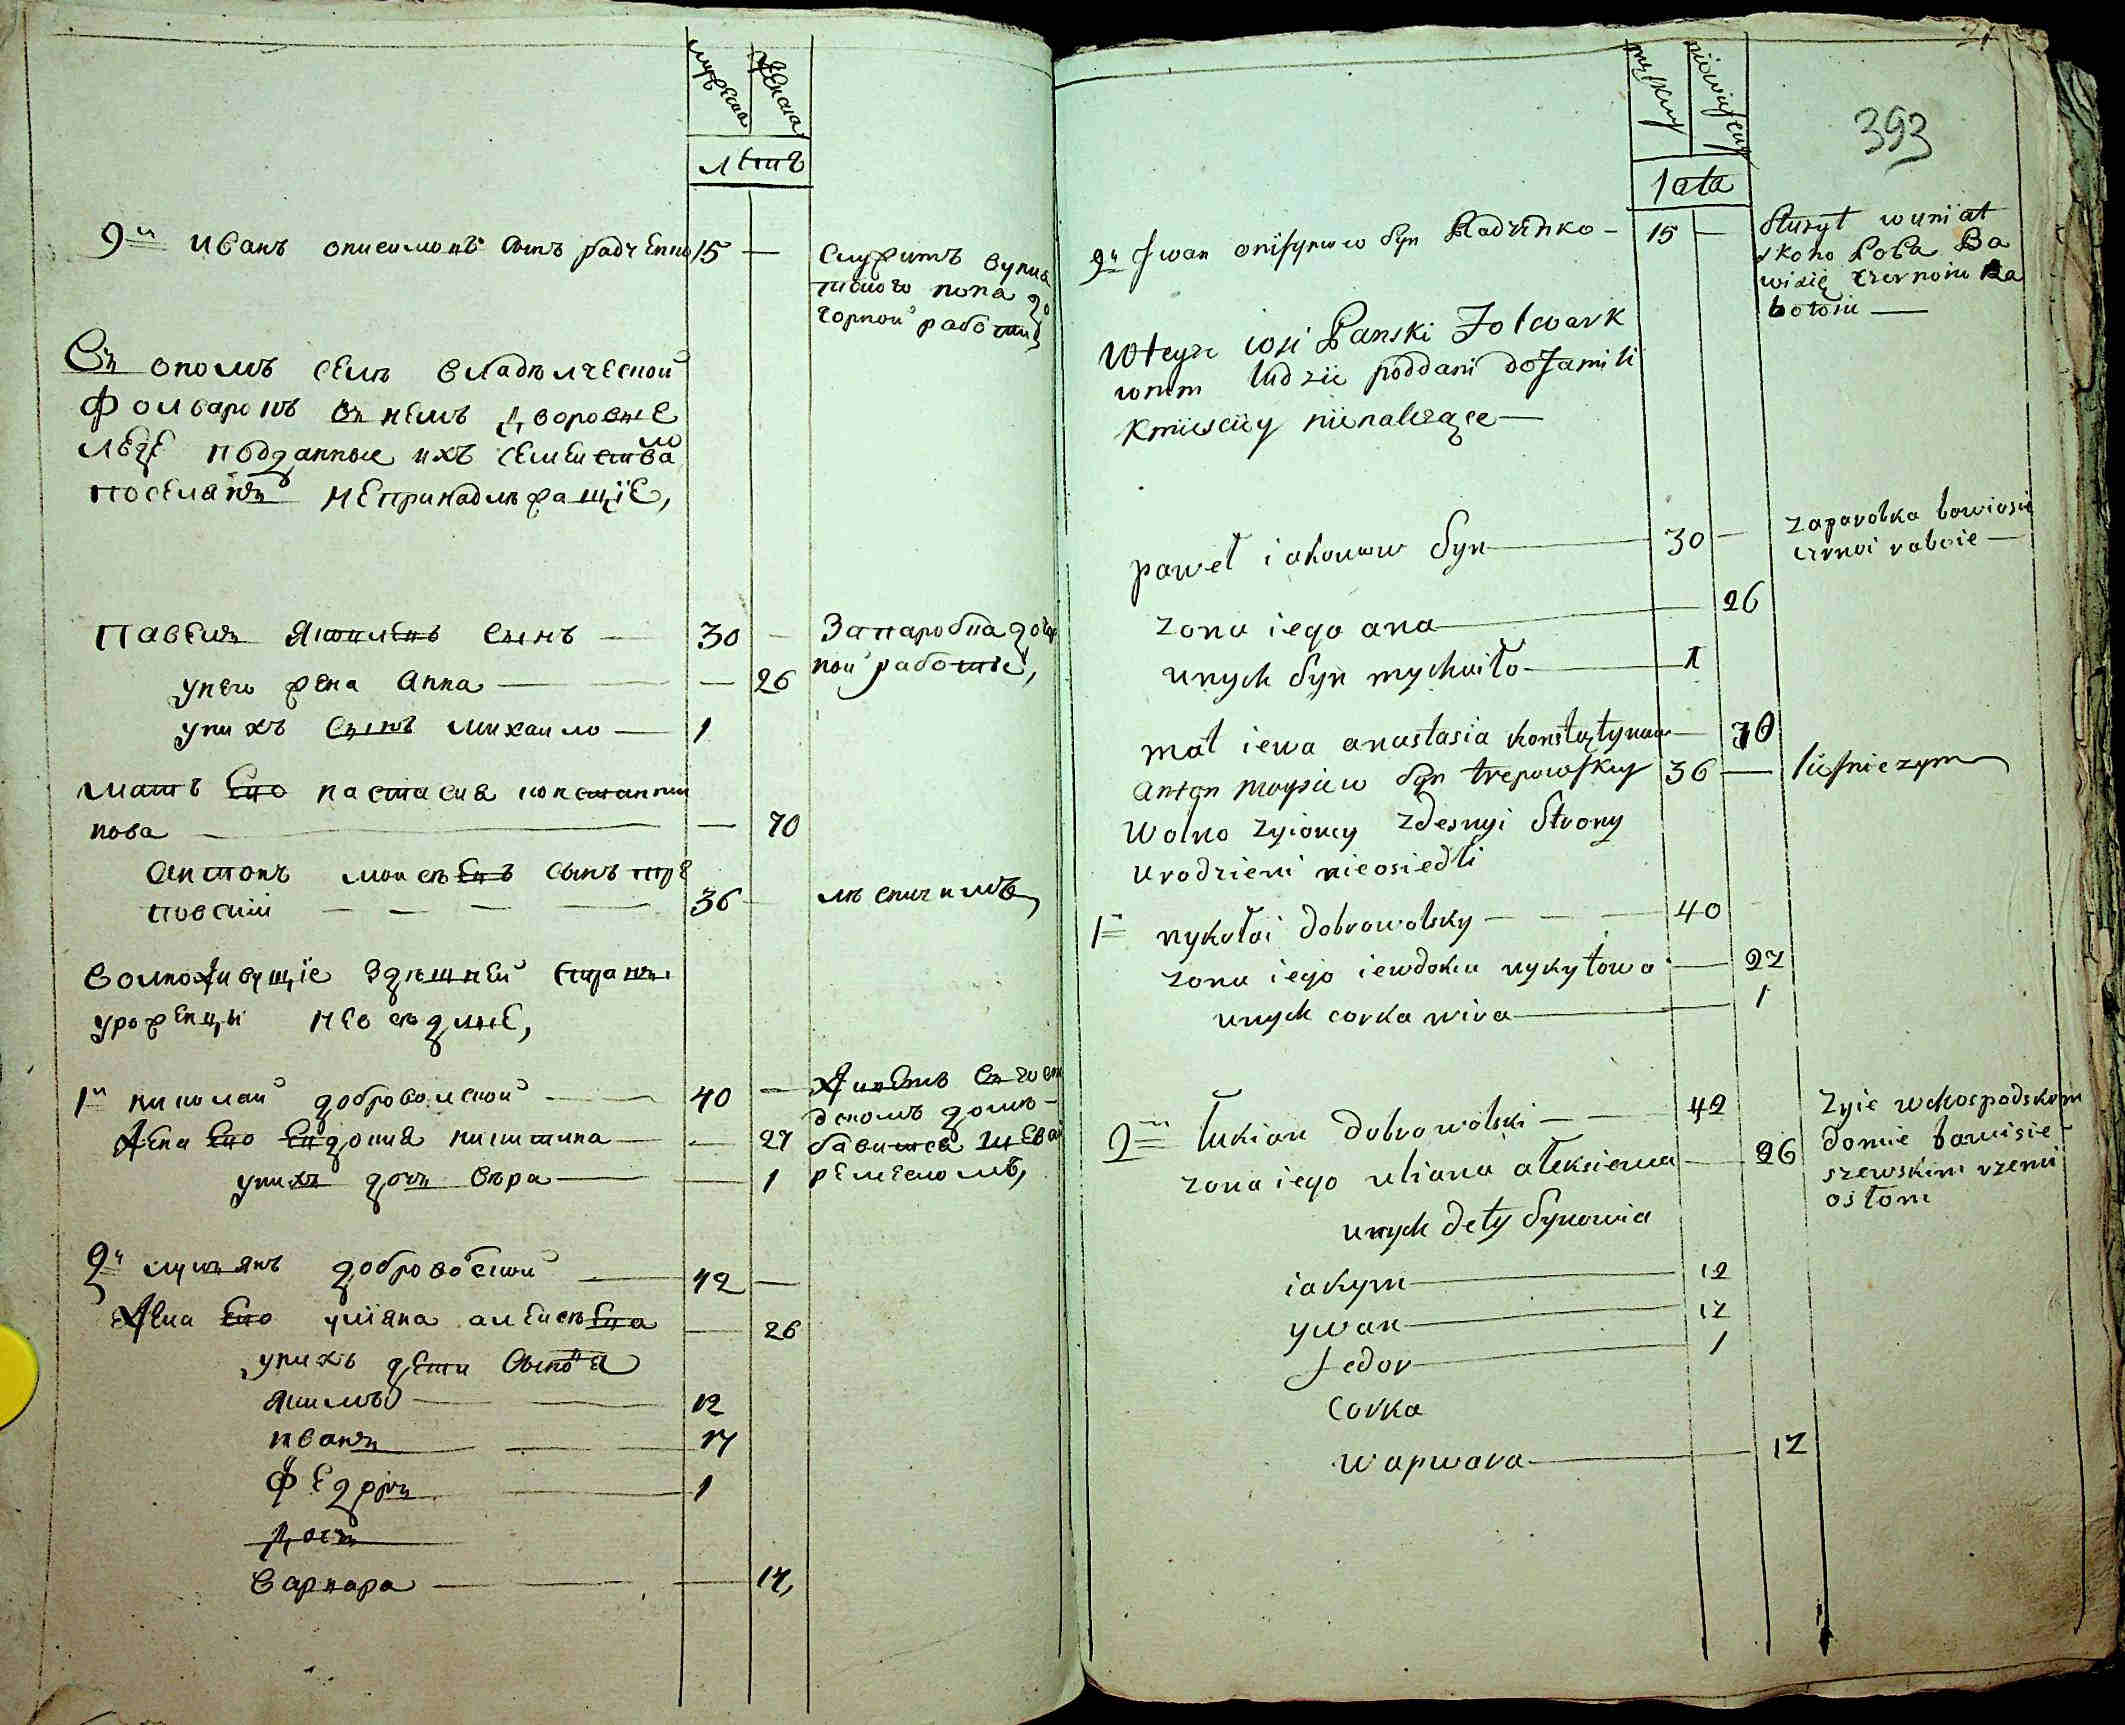 мужеска
женска
лѣтъ
9й иванъ онисимовъ сынъ радченко 15 —
служитъ вуния
тиского попа до
чорной работы
Въ ономъ селѣ владѣлческой
фолварокъ въ немъ дворовые
люде подданные ихъ семейства
поселянъ непринадлѣжащіе,
Павелъ Яковлевъ сынъ — 30 —
Запаробка до чор
ной работіе,
унего жена Анна — — 26
унихъ сынъ михаило — 1
мать Его настасия константи
нова — — 70
Антонъ моисѣевъ сынъ тре
повский — — — — 36 —
лѣсничимъ
волноживущіе здѣшней страны
уроженцы неосѣдлые,
1й николай доброволской — 40 —
живетъ въ госпо
дскомъ домѣ —
Жена Его Евдокия никитина — — 27
бавится шевским
унихъ дочь вѣра — — 1
ремесломъ,
2й лукиянъ доброволской — 42 —
Жена Его улїяна алексѣева — 26
унихъ дети сыновя
якимъ — — 12
иванъ — — 17
Федоръ — 1
Дочь
варвара — — — 17,
21
393
męskiey
niewiesciey
lata
9y Jwan onisymow Syn Radczenko — 15 —
Służyt wuniat
skoho Popa Ba
wisię czornoiu Ra
botoiu —
Wteyze wsi Panski Folwark
wnim ludzie poddani dofamili
Kmiesciey nienalezące —
paweł iakowow Syn — 30 —
zaparobka bawiosie
czrnoi raboie —
zona iego ana — 26
unych Syn mychaiło — 1
mat iewa anastasia konstątynowa — 70
anton Moysiew Syn trepowskiy 36 —
liesniczym
Wolno zyioncy zdesnyi Strony
urodzieni nieosiedli
1й nykołai dobrowolsky — — — 40
zona iego iewdokia nykytowa — 27
unych corka wira — 1
2й łukian dobrowolski — — 42
zyie wchospodskim
domie bawisie —
zona iego uliana aleksiewa — 26
szewskim rzemi
osłom
unych dety Synowia
iakym — 12
ywan — 17
fedor — 1
Corka
warwara — 17